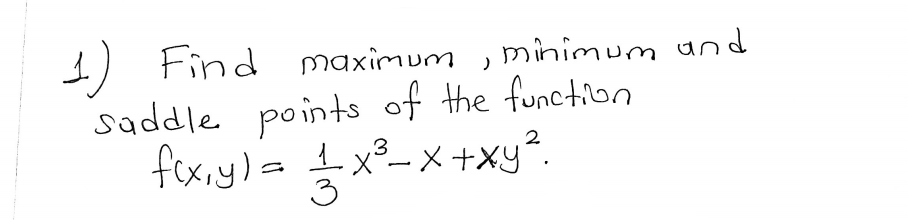 1) Find maximum, minimum and
saddle points of the function
f(x,y) = 1/3 x³ - x + xy².